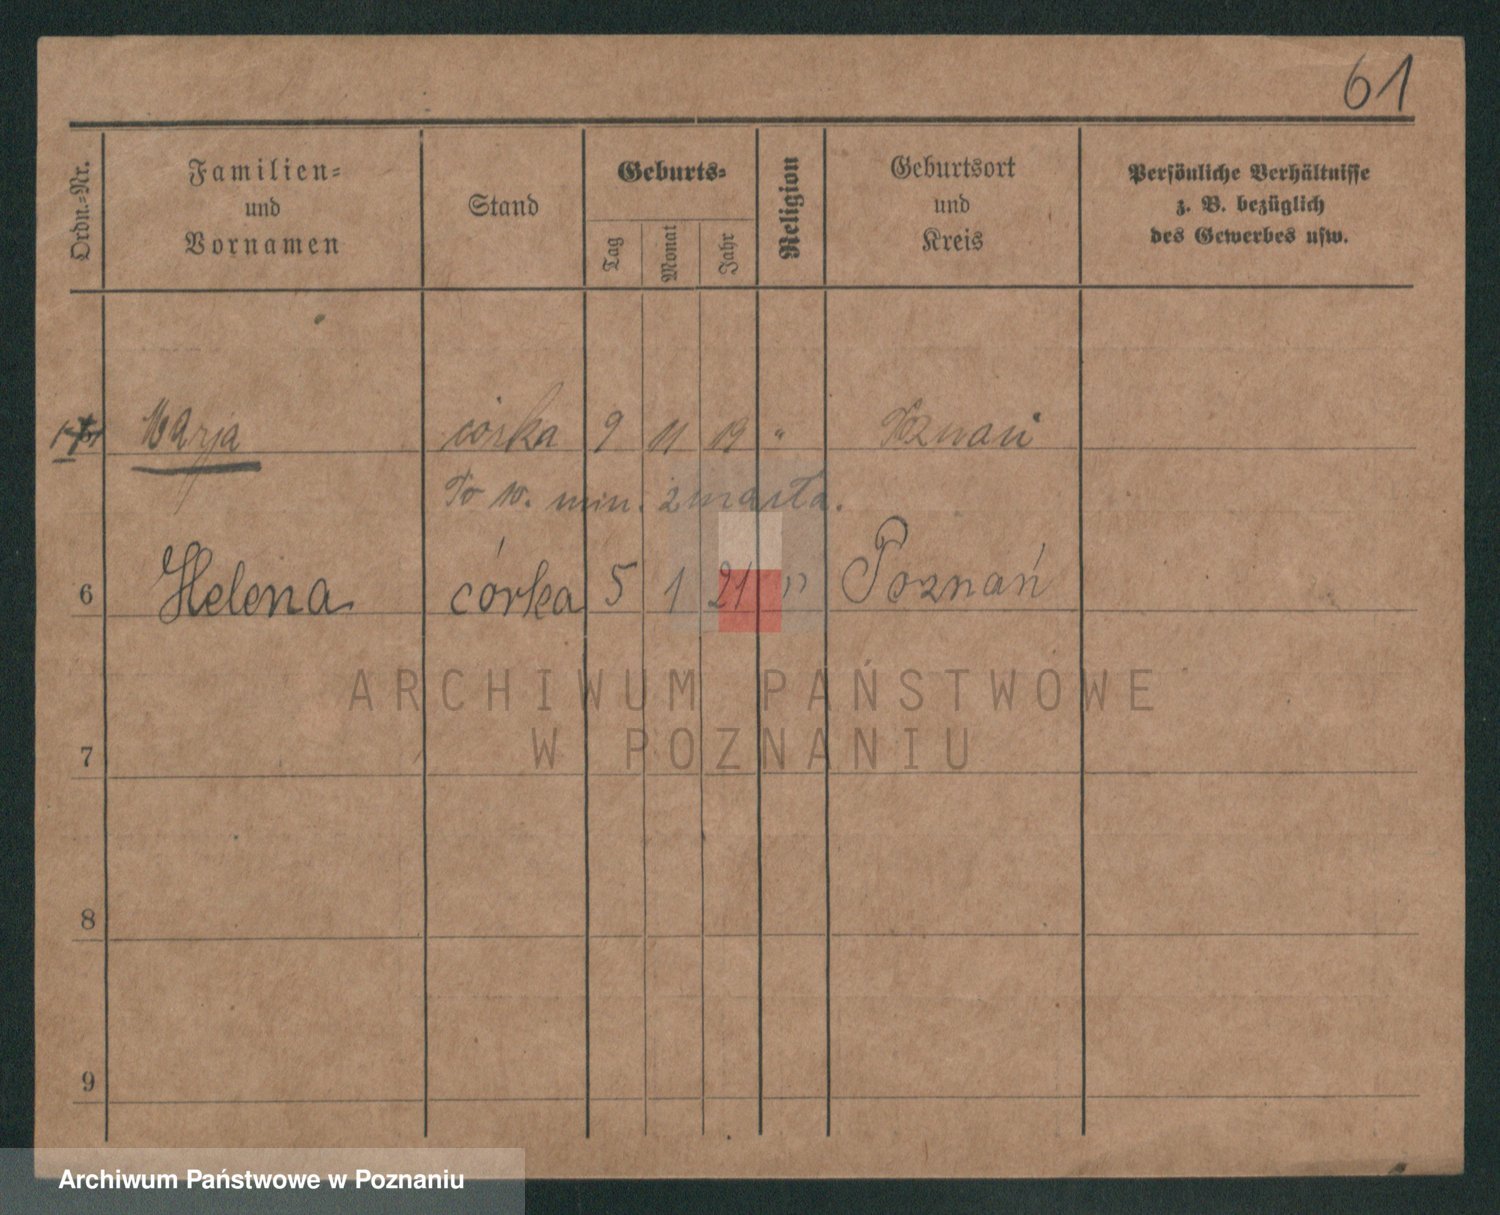 61
Ordn.-Nr.
Familien-
und
Vornamen
Stand
Geburts-
Tag
Monat
Jahr
Religion
Geburtsort
und
Kreis
Persönliche Verhältnisse
z. B. bezüglich
des Gewerbes usw.
Marja córka 9 11 19 " Poznań
zmarła.
6 Helena córka 5 1 21 " Poznań
ARCHIWUM PAŃSTWOWE
W POZNANIU
7
8
9
Archiwum Państwowe w Poznaniu